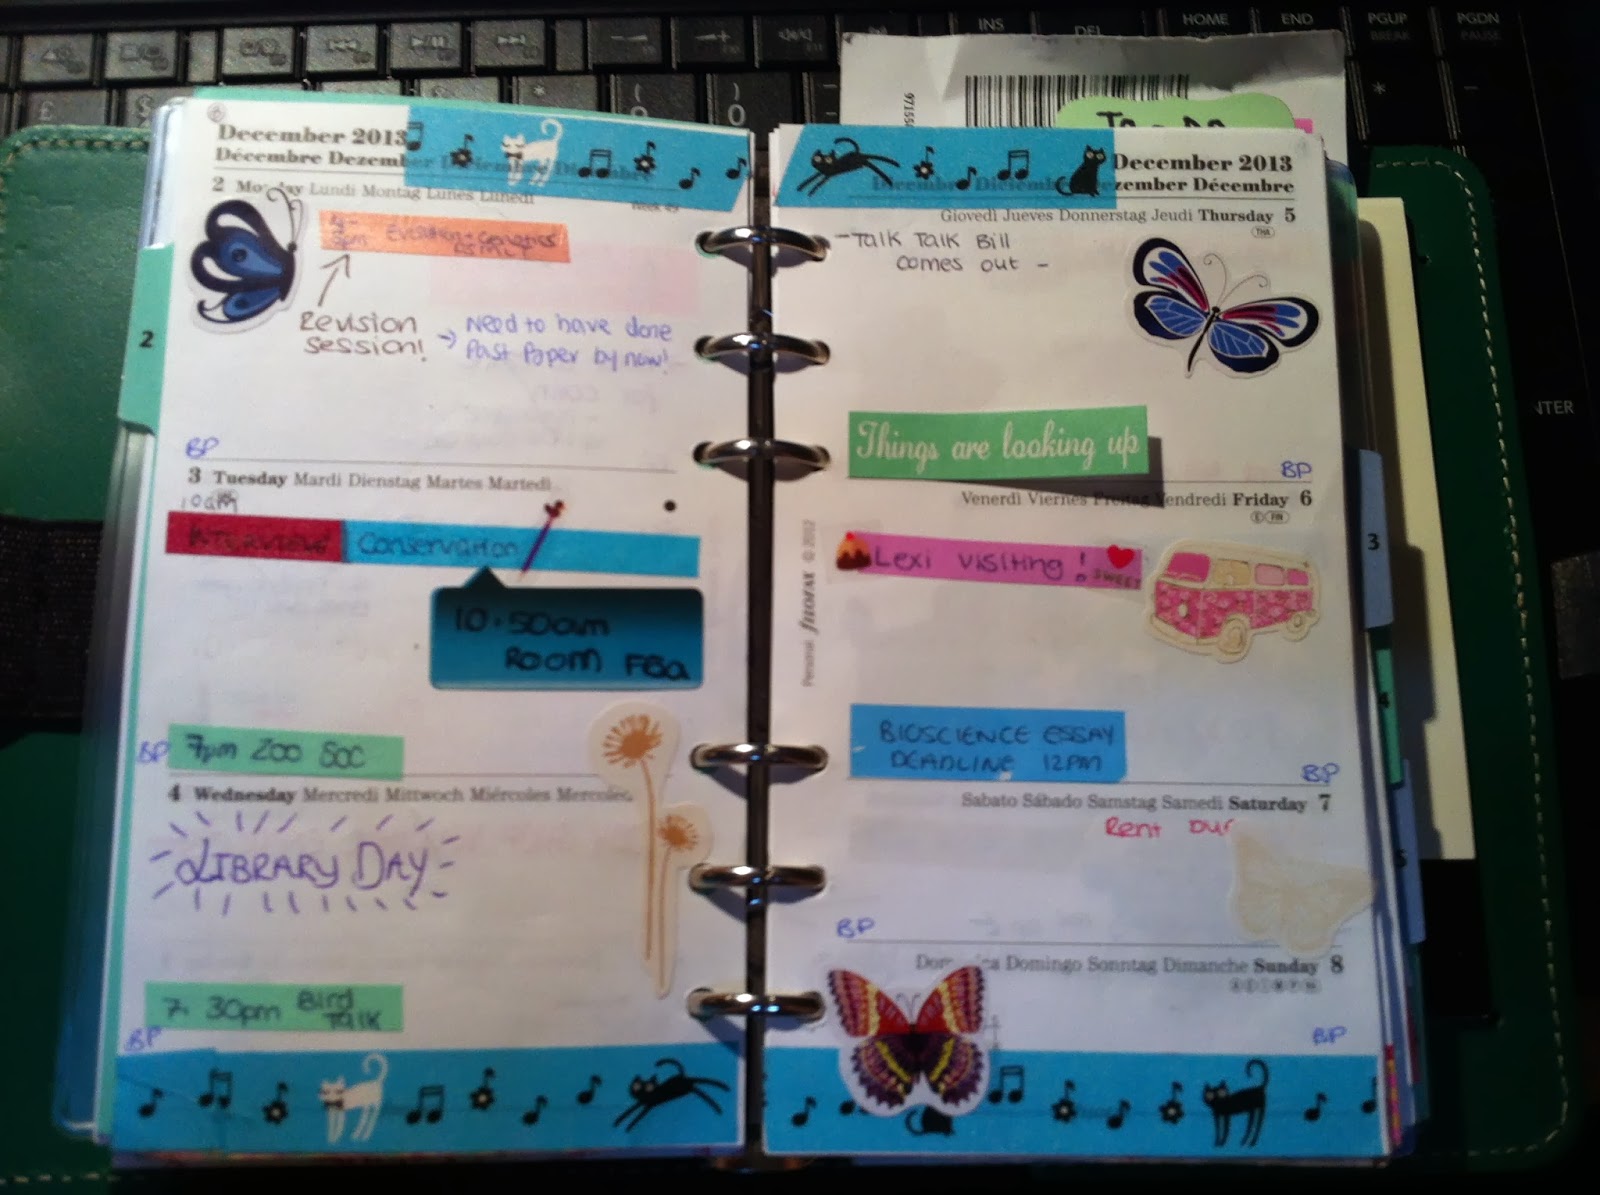 INS
DEL
HOME
END
PGUP
BREAK
PGDN
PAUSE
NTER
December 2013
Décembre Dezember
2 Lundi Montag Lunes Lunedì
Week 49
Evolution + Genetics
Revision
session!
→ Need to have done
Past Paper by now!
BP
3 Tuesday Mardi Dienstag Martes Martedì
10am
INTERVIEW Conservation
10.50am
ROOM F6a
BP 7pm Zoo Soc
4 Wednesday Mercredi Mittwoch Miércoles
LIBRARY DAY
7.30pm Bird
Talk
BP
2
December 2013
Dezember Décembre
Giovedì Jueves Donnerstag Jeudi Thursday 5
- Talk Talk Bill
comes out -
Things are looking up
BP
Venerdì Viernes Freitag Vendredi Friday 6
Lexi visiting!
SWEET
BIOSCIENCE ESSAY
DEADLINE 12PM
BP
Sabato Sábado Samstag Samedi Saturday 7
Rent our
BP
Domingo Sonntag Dimanche Sunday 8
BP
Personal filofax © 2012
3
4
5